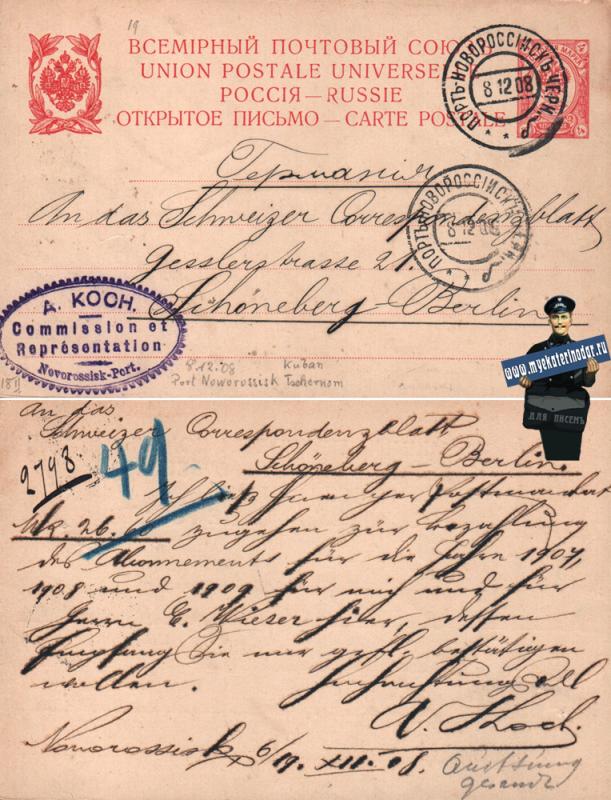 19
ВСЕМІРНЫЙ ПОЧТОВЫЙ СОЮ
UNION POSTALE UNIVERSE
РОССІЯ — RUSSIE
ОТКРЫТОЕ ПИСЬМО — CARTE POSTALE
ПОРТЪ-НОВОРОССІЙСКЪ-ЧЕРН.
8 12 08
Германия
ПОРТЪ-НОВОРОССІЙСКЪ
8 12 08
An das Schweizer Correspondenzblatt
Gesslerstrasse 21.
Schöneberg-Berlin
A. KOCH.
Commission et
Représentation
Novorossisk-Port.
8.12.08 Kuban
Port Noworossisk Tschernom
www.myekaterinodar.ru
ДЛЯ ПИСЕМЪ
An das
Schweizer Correspondenzblatt
Schöneberg-Berlin.
2798
49
Ich ließ Ihnen per Postmandat
Mk. 26. zugehen zur Bezahlung
des Abonnements für die Jahre 1907,
1908 und 1909 für mich und für
Herrn E. Wieser hier, dessen
Empfang Sie mir gefl. bestätigen
wollen. Hochachtungsvoll
A. Koch.
Novorossisk 6/19. XII. 08.
Quittung
gesandt